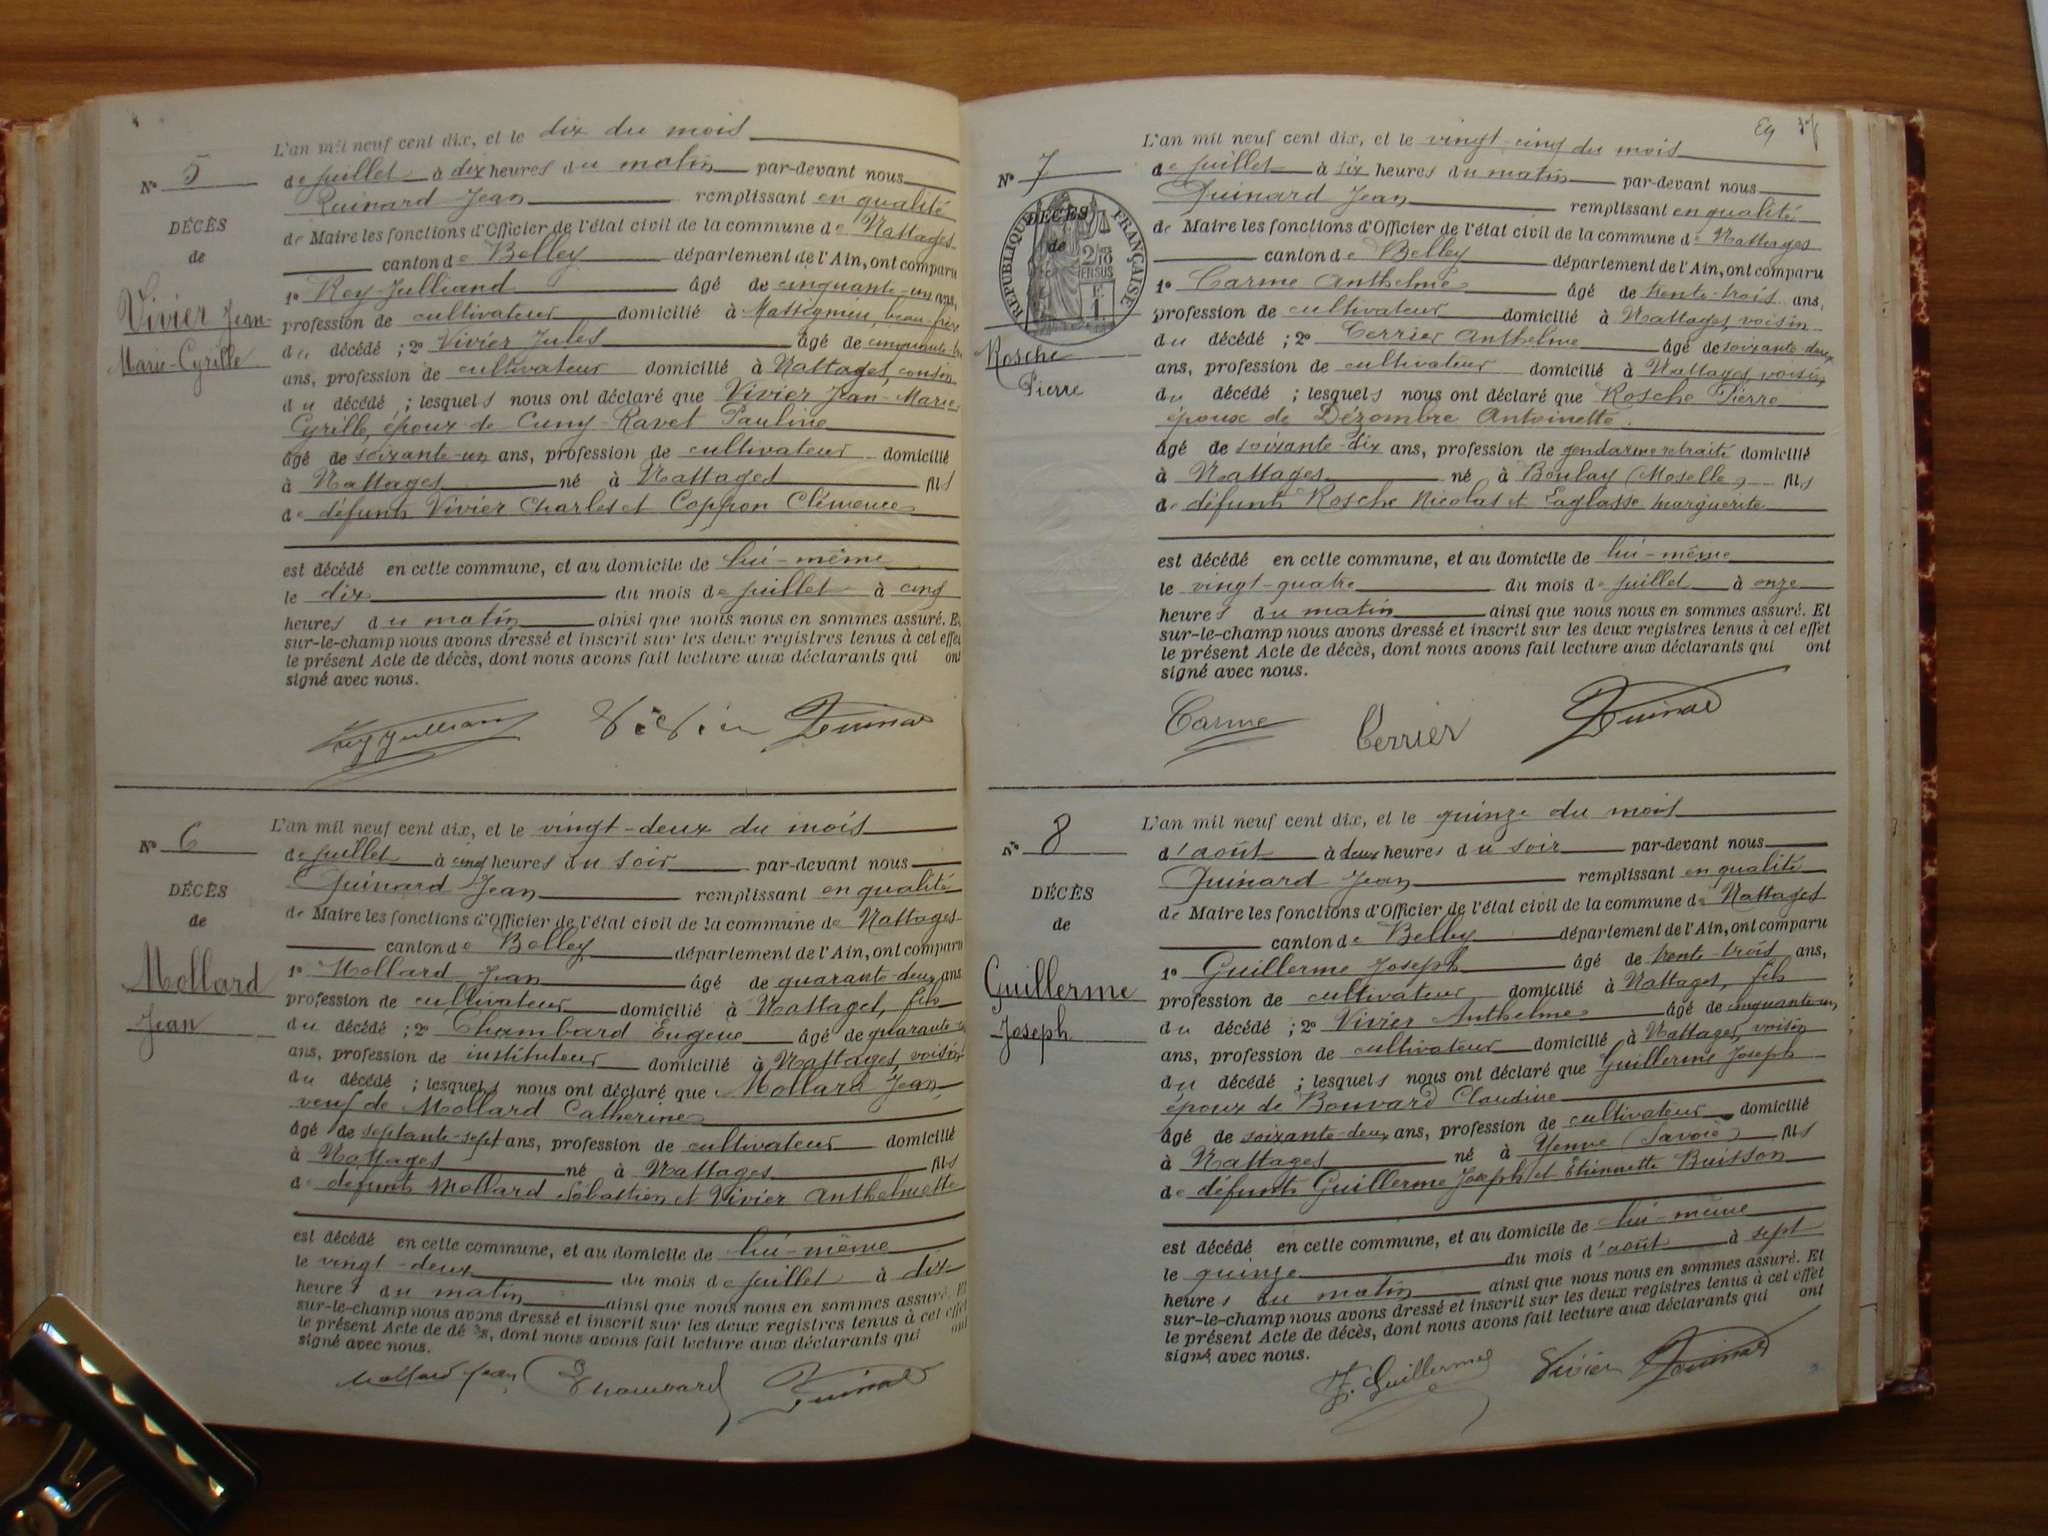 L'an mil neuf cent dix, et le dix du mois
N° 5
de juillet à dix heures du matin par-devant nous
Quinard Jean remplissant en qualité
DÉCÈS
de Maire les fonctions d'Officier de l'état civil de la commune de Nattages
de
canton de Belley département de l'Ain, ont comparu
1° Rey-Julliand âgé de cinquante-un ans,
Vivier Jean-
Marie-Cyrille
profession de cultivateur domicilié à Massignieu, beau-frère
du décédé ; 2° Vivier Jules âgé de cinquante
ans, profession de cultivateur domicilié à Nattages, cousin
du décédé ; lesquels nous ont déclaré que Vivier Jean-Marie
Cyrille, époux de Cuny-Ravet Pauline
âgé de soixante-un ans, profession de cultivateur domicilié
à Nattages né à Nattages fils
de défunts Vivier Charles et Clémence
est décédé en cette commune, et au domicile de lui-même
le dix du mois de juillet à cinq
heures du matin ainsi que nous nous en sommes assuré. Et
sur-le-champ nous avons dressé et inscrit sur les deux registres tenus à cet effet
le présent Acte de décès, dont nous avons fait lecture aux déclarants qui ont
signé avec nous.
Rey Julliand Vivier Quinard
L'an mil neuf cent dix, et le vingt-deux du mois
N° 6
de juillet à cinq heures du soir par-devant nous
Quinard Jean remplissant en qualité
DÉCÈS
de Maire les fonctions d'Officier de l'état civil de la commune de Nattages
de
canton de Belley département de l'Ain, ont comparu
Mollard
Jean
1° Mollard Jean âgé de quarante-deux ans
profession de cultivateur domicilié à Nattages, fils
du décédé ; 2° Chambard Eugène âgé de quarante
ans, profession de instituteur domicilié à Nattages, voisin
du décédé ; lesquels nous ont déclaré que Mollard Jean
veuf de Mollard Catherine
âgé de septante-sept ans, profession de cultivateur domicilié
à Nattages né à Nattages fils
de défunts Mollard Sébastien et Vivier Anthelmette
est décédé en cette commune, et au domicile de lui-même
le vingt-deux du mois de juillet à dix
heures du matin ainsi que nous nous en sommes assuré. Et
sur-le-champ nous avons dressé et inscrit sur les deux registres tenus à cet effet
le présent Acte de dé s, dont nous avons fait lecture aux déclarants qui ont
signé avec nous.
Mollard Jean Chambard Quinard
L'an mil neuf cent dix, et le vingt-cinq du mois
N° 7
de juillet à six heures du matin par-devant nous
Quinard Jean remplissant en qualité
DÉCÈS
de
RÉPUBLIQUE FRANÇAISE
de Maire les fonctions d'Officier de l'état civil de la commune de Nattages
canton de Belley département de l'Ain, ont comparu
1° Carme Anthelme âgé de trente-trois ans,
profession de cultivateur domicilié à Nattages, voisin
Rosche
Pierre
du décédé ; 2° Cerrier Anthelme âgé de soixante-deux
ans, profession de cultivateur domicilié à Nattages, voisin
du décédé ; lesquels nous ont déclaré que Rosche Pierre
époux de Dézombre Antoinette
âgé de soixante-dix ans, profession de gendarme retraité domicilié
à Nattages né à Boulay (Moselle) fils
de défunts Rosche Nicolas et Marguerite
est décédé en cette commune, et au domicile de lui-même
le vingt-quatre du mois de juillet à onze
heures du matin ainsi que nous nous en sommes assuré. Et
sur-le-champ nous avons dressé et inscrit sur les deux registres tenus à cet effet
le présent Acte de décès, dont nous avons fait lecture aux déclarants qui ont
signé avec nous.
Carme Cerrier Quinard
L'an mil neuf cent dix, et le quinze du mois
N° 8
d'août à deux heures du soir par-devant nous
Quinard Jean remplissant en qualité
DÉCÈS
de Maire les fonctions d'Officier de l'état civil de la commune de Nattages
de
canton de Belley département de l'Ain, ont comparu
Guillerme
Joseph
1° Guillerme Joseph âgé de trente-trois ans,
profession de cultivateur domicilié à Nattages, fils
du décédé ; 2° Vivier Anthelme âgé de cinquante-un
ans, profession de cultivateur domicilié à Nattages, voisin
du décédé ; lesquels nous ont déclaré que Guillerme Joseph
époux de Bouvard Claudine
âgé de soixante-deux ans, profession de cultivateur domicilié
à Nattages né à Yenne (Savoie) fils
de défunts Guillerme Joseph et Etiennette Buisson
est décédé en cette commune, et au domicile de lui-même
le quinze du mois d'août à sept
heures du matin ainsi que nous nous en sommes assuré. Et
sur-le-champ nous avons dressé et inscrit sur les deux registres tenus à cet effet
le présent Acte de décès, dont nous avons fait lecture aux déclarants qui ont
signé avec nous.
J. Guillerme Vivier Quinard